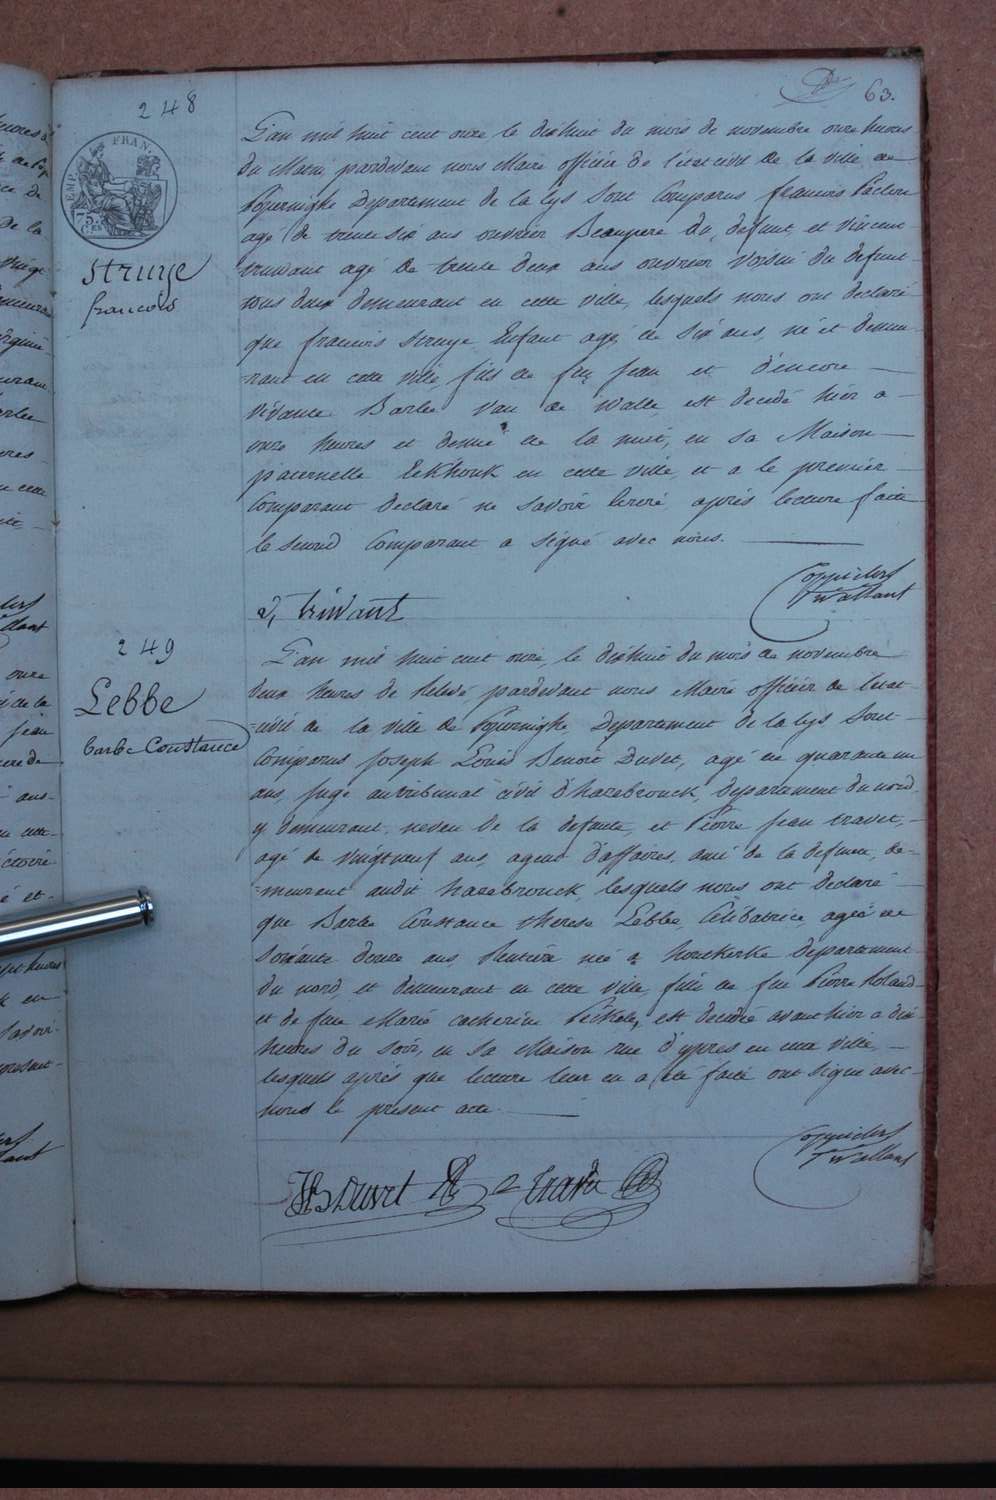 63.
248
EMP. FRAN.
75. Ces
Struye
francois
L'an mil huit cent onze le dixhuit du mois de novembre onze heures
du Matin, pardevant nous Maire officier de l'etat civil de la ville de
Poperinghe Departement de la Lys Sont Comparus francois
agé de trente six ans ouvrier Beaupere du defunt, et vincent
truwant agé de trente deux ans ouvrier voisin du defunt
tous deux demeurant en cette ville, lesquels nous ont declaré
que francois Struye Enfant agé de six ans, né et demeu-
-rant en cette ville, fils de feu jean et d'encore
vivante Barbe Van de Walle, est decedé hier a
onze heures et demie de la nuit, en sa Maison
paternelle Ekhouk en cette ville, et a le premier
Comparant declaré ne savoir ecrire, après lecture faite
le second Comparant a signé avec nous.
truwant
249
Lebbe
barbe Constance
L'an mil huit cent onze, le dixhuit du mois de novembre
deux heures de Relevé pardevant nous Maire officier de l'etat
-civil de la ville de Poperinghe, Departement de la Lys Sont
Comparus joseph Louis Benoit Duvet, agé de quarante un
ans, juge au tribunal civil d'hazebrouck, departement du nord,
y demeurant, neveu de la defunte, et Pierre jean travet,
agé de vingt neuf ans, agent d'affaires, ami de la defunte, de-
-meurent audit hazebrouck lesquels nous ont declaré
que Barbe Constance therese Lebbe, Célibatrice, ageé de
soixante douze ans, Rentiere née a houtkerke departement
du nord, et demeurant en cette ville, fille de feu Pierre Roland
et de feue Marie catherine, est decedée avant hier a dix
heures du soir, en sa Maison rue d'ypres en cette ville,
lesquels après que lecture leur en a été faite ont signé avec
nous le présent acte.